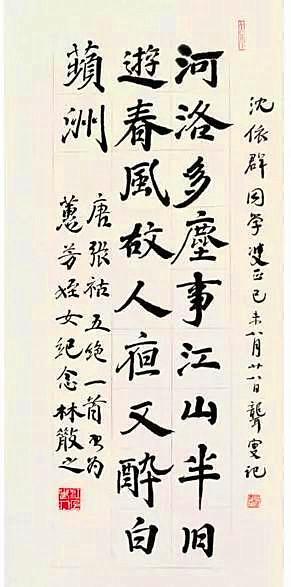 沈依群同学正己未八月廿八日龔雯记
河洛多塵事江山半旧
遊春風故人夜又醉白
蘋洲
唐張祜五绝一首书为
蕙芳姪女纪念林散之